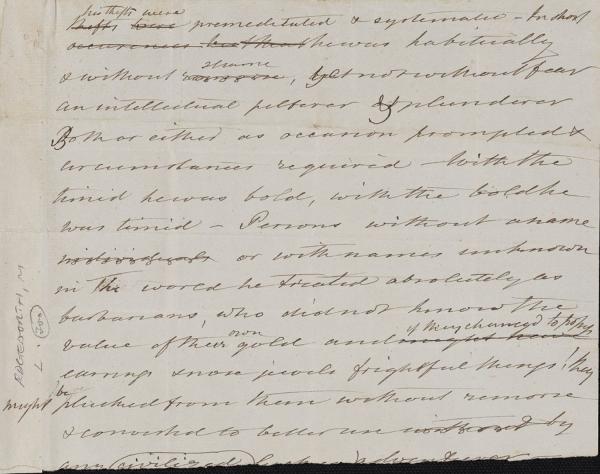 his thefts were
thefts were premeditated & systematic - In short
occurrences but that he was habitually
shame
& without remorse, yet not without fear
an intellectual pilferer & plunderer
Both or either as occasion prompted &
circumstances required - With the
timid he was bold, with the bold he
was timid - Persons without a name
individuals or with names unknown
in the world he treated absolutely as
barbarians, who did not know the
value of their own gold and might have
if they chanced to possess
earrings & nose jewels frightful things! they
might be plucked from them without remorse
& converted to better use without by
any civilized adventurer
EDGEWORTH, M
L.